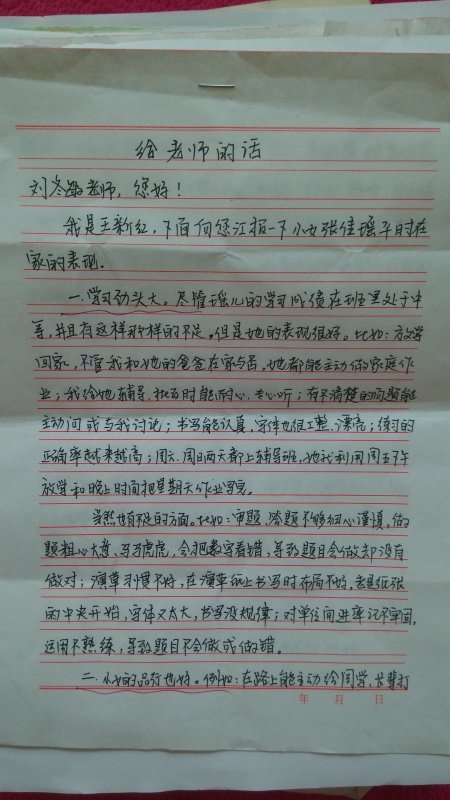 给老师的话
刘冬敏老师，您好！
我是王新红，下面向您汇报一下小女张佳瑶平时在
家的表现。
一.学习劲头大。尽管瑶儿的学习成绩在班里处于中
等，并且有这样那样的不足。但是她的表现很好。比如：放学
回家，不管我和她的爸爸在家与否，她都能主动做家庭作
业；我给她辅导、批改时能耐心、专心听；有不清楚的问题能
主动问或与我讨论；书写能认真，字体也很工整、漂亮；练习的
正确率越来越高；周六、周日两天都上辅导班，她就利用周五下午
放学和晚上时间把星期天作业写完。
当然也有不足的方面。比如：审题、答题不够细心谨慎，做
题粗心大意，马马虎虎，会把数字看错，导致题目会做却没有
做对；演草习惯不好，在演草纸上书写时布局不好，老是纸张
的中央开始，字体又太大，书写没规律；对单位间进率记不牢固，
运用不熟练，导致题目不会做或做错。
二.女儿的品行也好。例如：在路上能主动给同学、长辈打
年 月 日